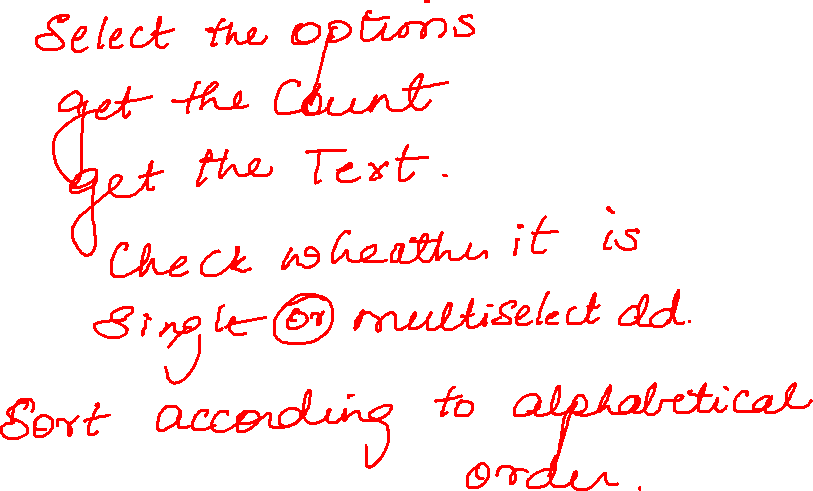 Select the options
get the Count
get the Text.
Check wheather it is
single or multiselect dd.
Sort according to alphabetical
order.